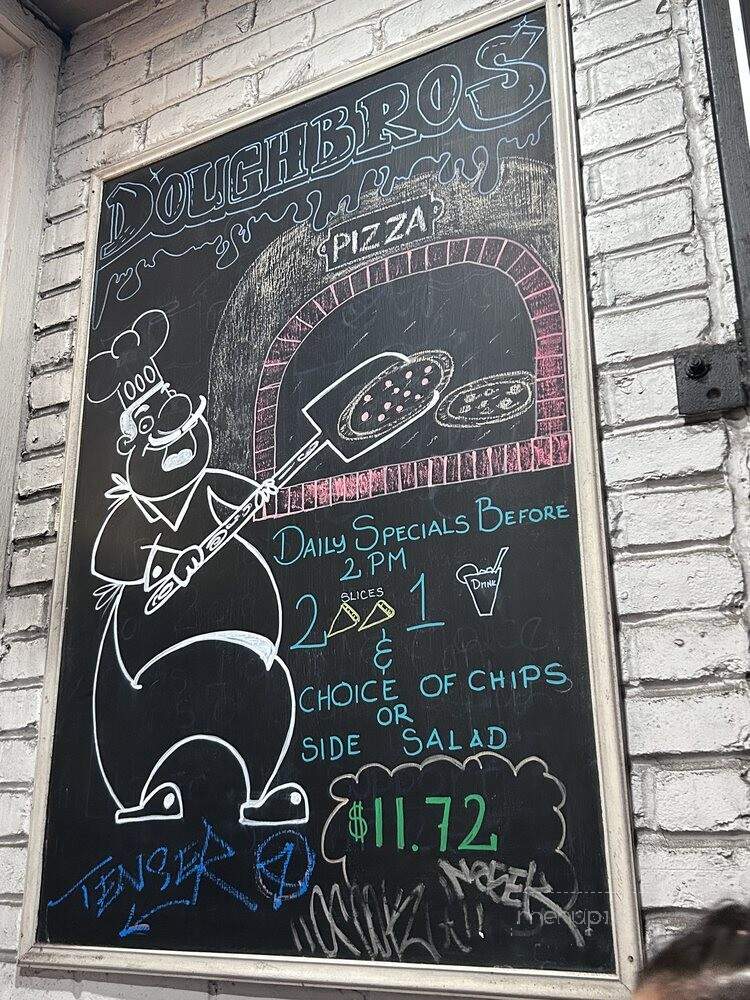 DOUGHBROS
PIZZA
DAILY SPECIALS BEFORE
2 PM
SLICES
2 1 DRINK
&
CHOICE OF CHIPS
OR
SIDE SALAD
$11.72
TENSER
menupi